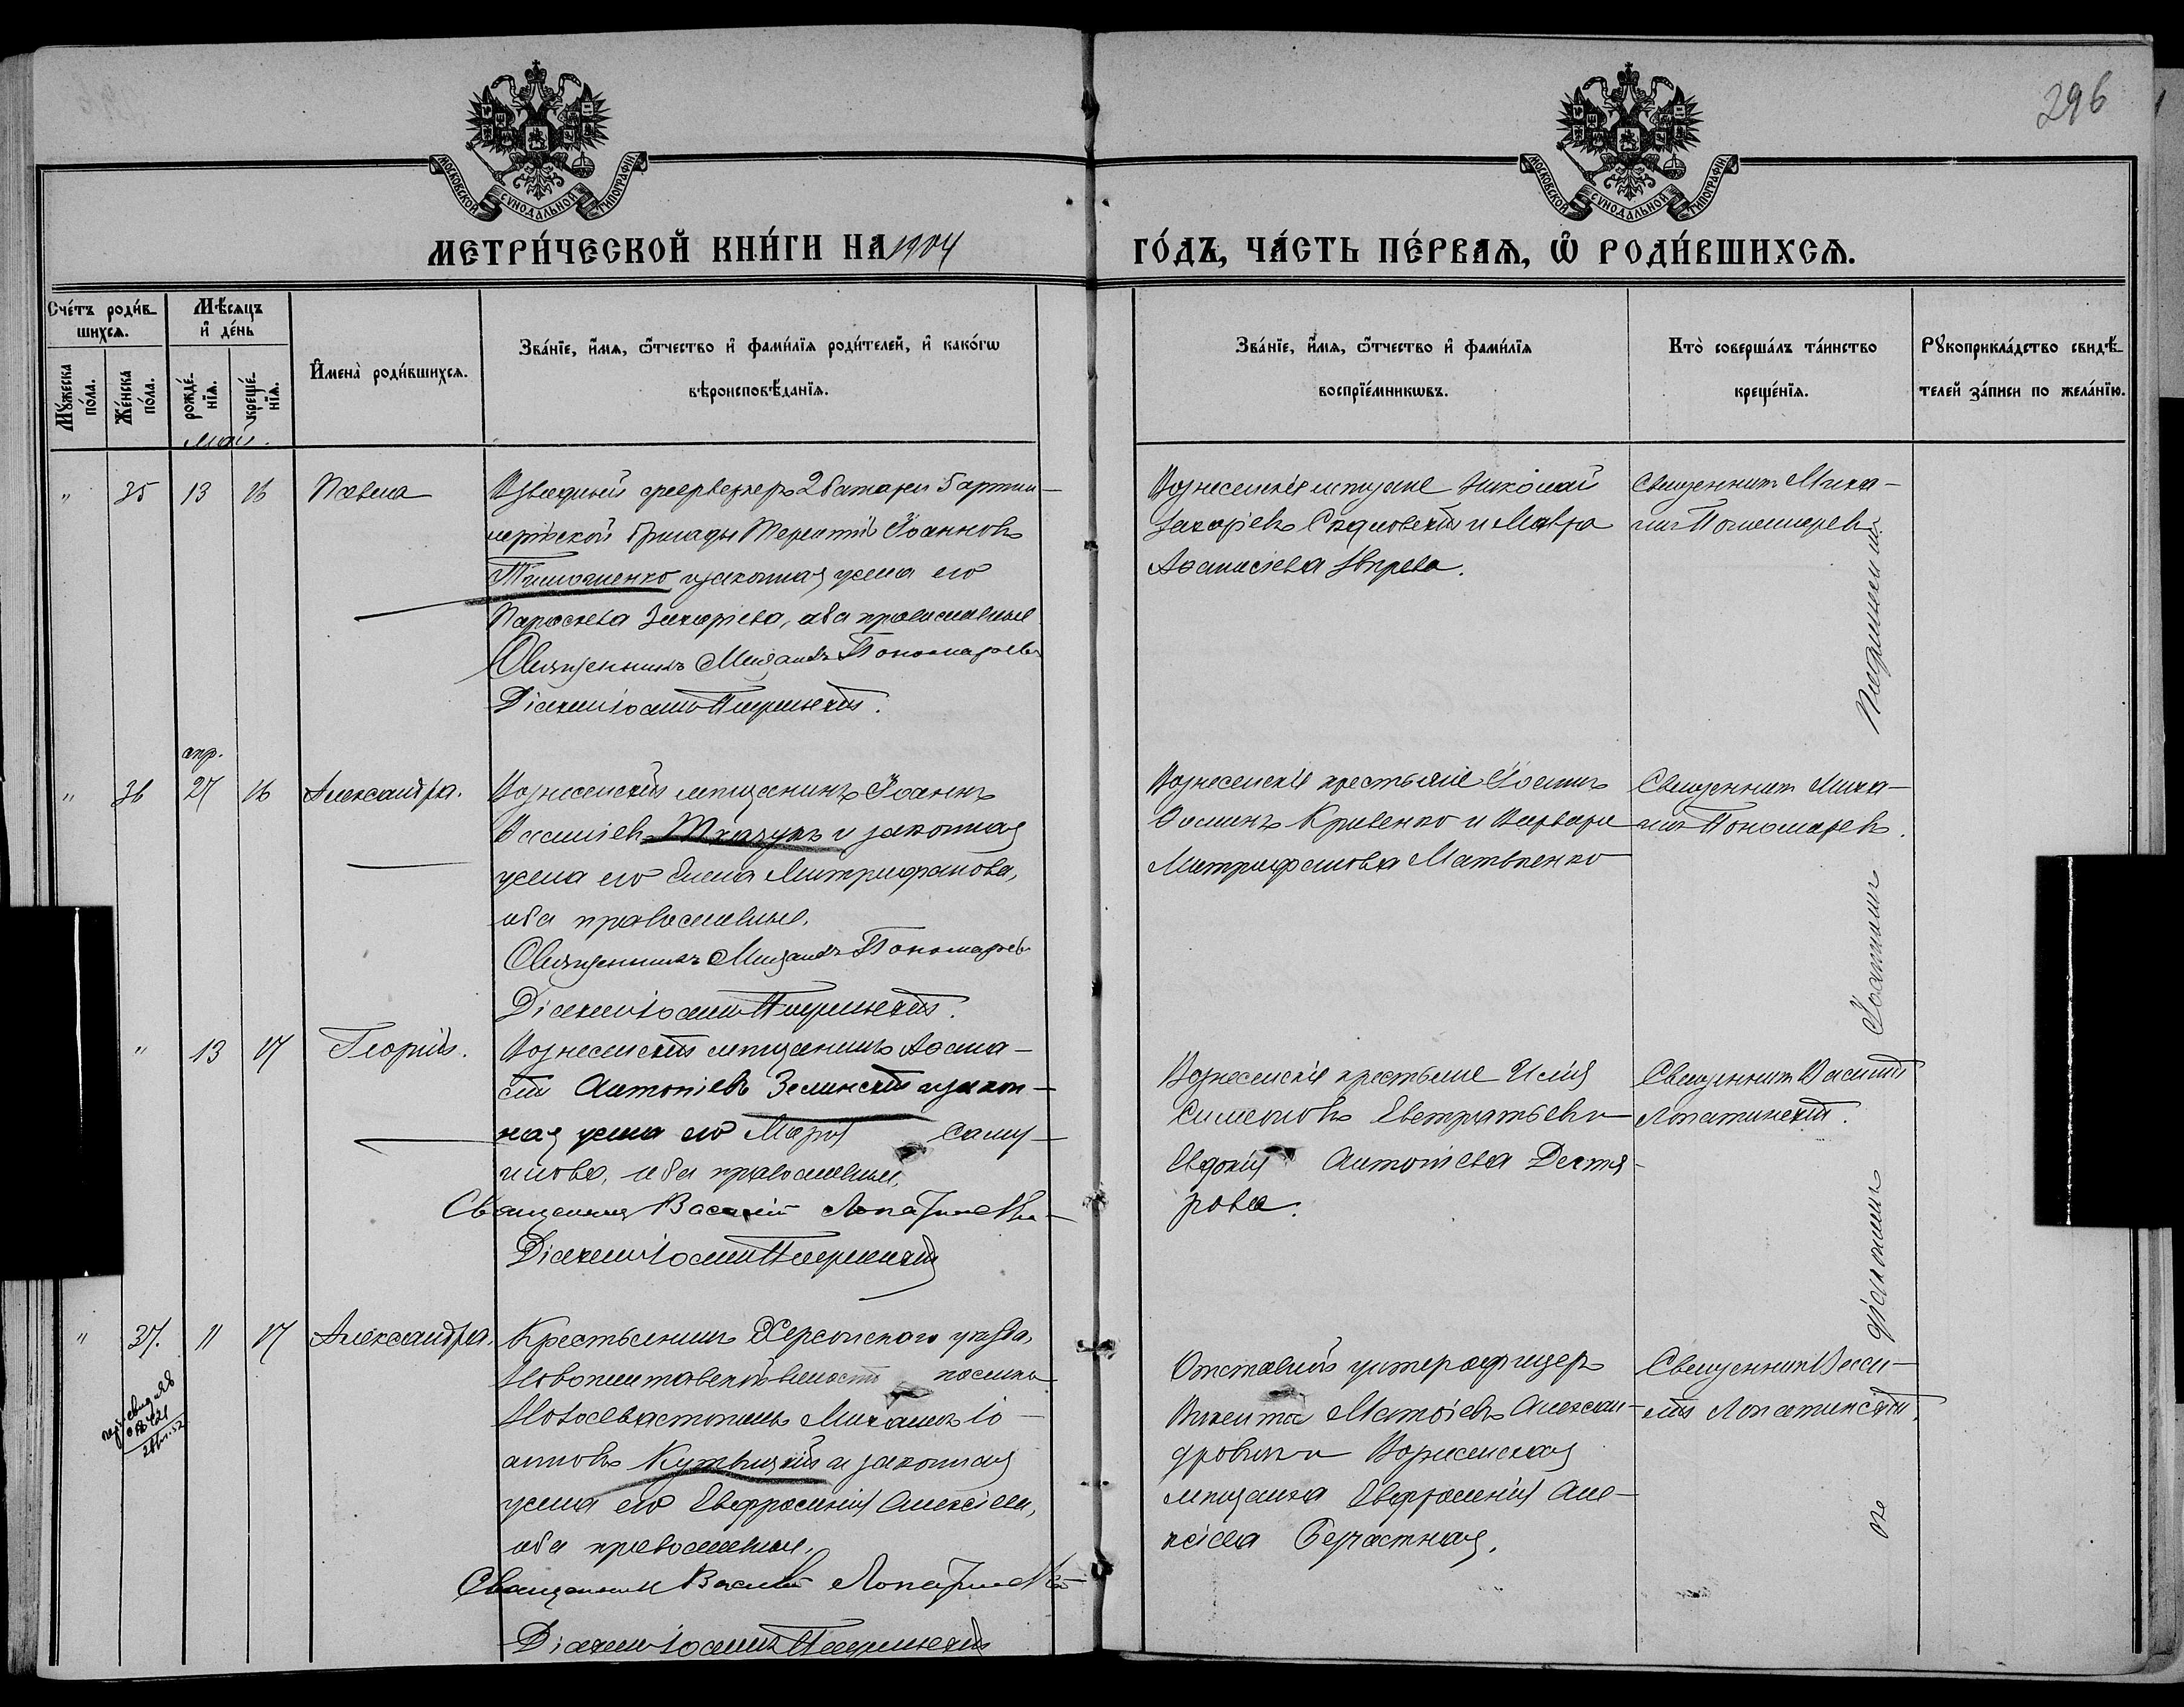 296
МОСКОВСКОЙ СѴНОДАЛЬНОЙ ТИПОГРАФІИ
МОСКОВСКОЙ СѴНОДАЛЬНОЙ ТИПОГРАФІИ
МЕТРИ́ЧЕСКОЙ КНИ́ГИ НА 1904
ГО́ДЪ, ЧА́СТЬ ПЕ́РВАѦ, Ѽ РОДИ́ВШИХСѦ.
Сче́тъ роди́в-
шихсѧ.
Мѣ́сяцъ
и҆ де́нь
Му́жеска
по́ла.
Же́нска
по́ла.
рожде́-
нїѧ.
креще́-
нїѧ.
И҆мена̀ роди́вшихсѧ.
Зва́нїе, и҆́мѧ, ѻ҆́тчество и҆ фами́лїѧ роди́телей, и҆ како́гѡ
вѣроисповѣ́данїѧ.
Зва́нїе, и҆́мѧ, ѻ҆́тчество и҆ фами́лїѧ
воспрїе́мникѡвъ.
Кто̀ соверша́лъ та́инство
креще́нїѧ.
Рꙋкоприкла́дство свидѣ́-
телей за́писи по жела́нїю.
май.
" 35 13 16 Павла
Взводный феерверкеръ 2 батареи 5 артил-
лерійской бригады Терентій Іоанновъ
Тимошенко и законная жена его
Параскева Захаріева, оба православные
Священникъ Михаилъ Пономаревъ
Діаконъ Іоаннъ
Вознесенскіе мѣщане Николай
Захаріевъ Садловскій и Мавра
Аѳанасіева
Священникъ Миха-
илъ Пономаревъ.
апр.
" 36 27 16 Александра.
Вознесенскій мѣщанинъ Іоаннъ
Василіевъ Ткачукъ и законная
жена его Елена Митрофанова,
оба православные.
Священникъ Михаилъ Пономаревъ
Діаконъ Іоаннъ
Вознесенскіе крестьяне Іоаннъ
Кривенко и Варвара
Митрофанова Матвѣенко
Священникъ Миха-
илъ Пономаревъ.
" 13 17 Георгій.
Вознесенскій мѣщанинъ Аѳана-
сій Антоніевъ Зелинскій и закон-
ная жена его Марія Саму-
илова, оба православные.
Священникъ Василій Лопатинскій
Діаконъ Іоаннъ
Вознесенскіе крестьяне Илія
Симеоновъ Евстратьевъ и
Евдокія Антоніева Дегтя-
рова.
Священникъ Василій
Лопатинскій.
" 37. 11 17 Александра.
Крестьянинъ Херсонскаго уѣзда,
волости поселка
Новосевастополь Михаилъ Іо-
анновъ и законная
жена его Евфросинія Алексіева,
оба православные.
Священникъ Василій Лопатинскій
Діаконъ Іоаннъ
Отставной унтеръ офицеръ
Викентій Матѳіевъ Алексан-
дровичъ и Вознесенская
мѣщанка Евфросинія Але-
ксіева Безчастная.
Священникъ Васи-
лій Лопатинскій.
съ діакономъ Іоанномъ